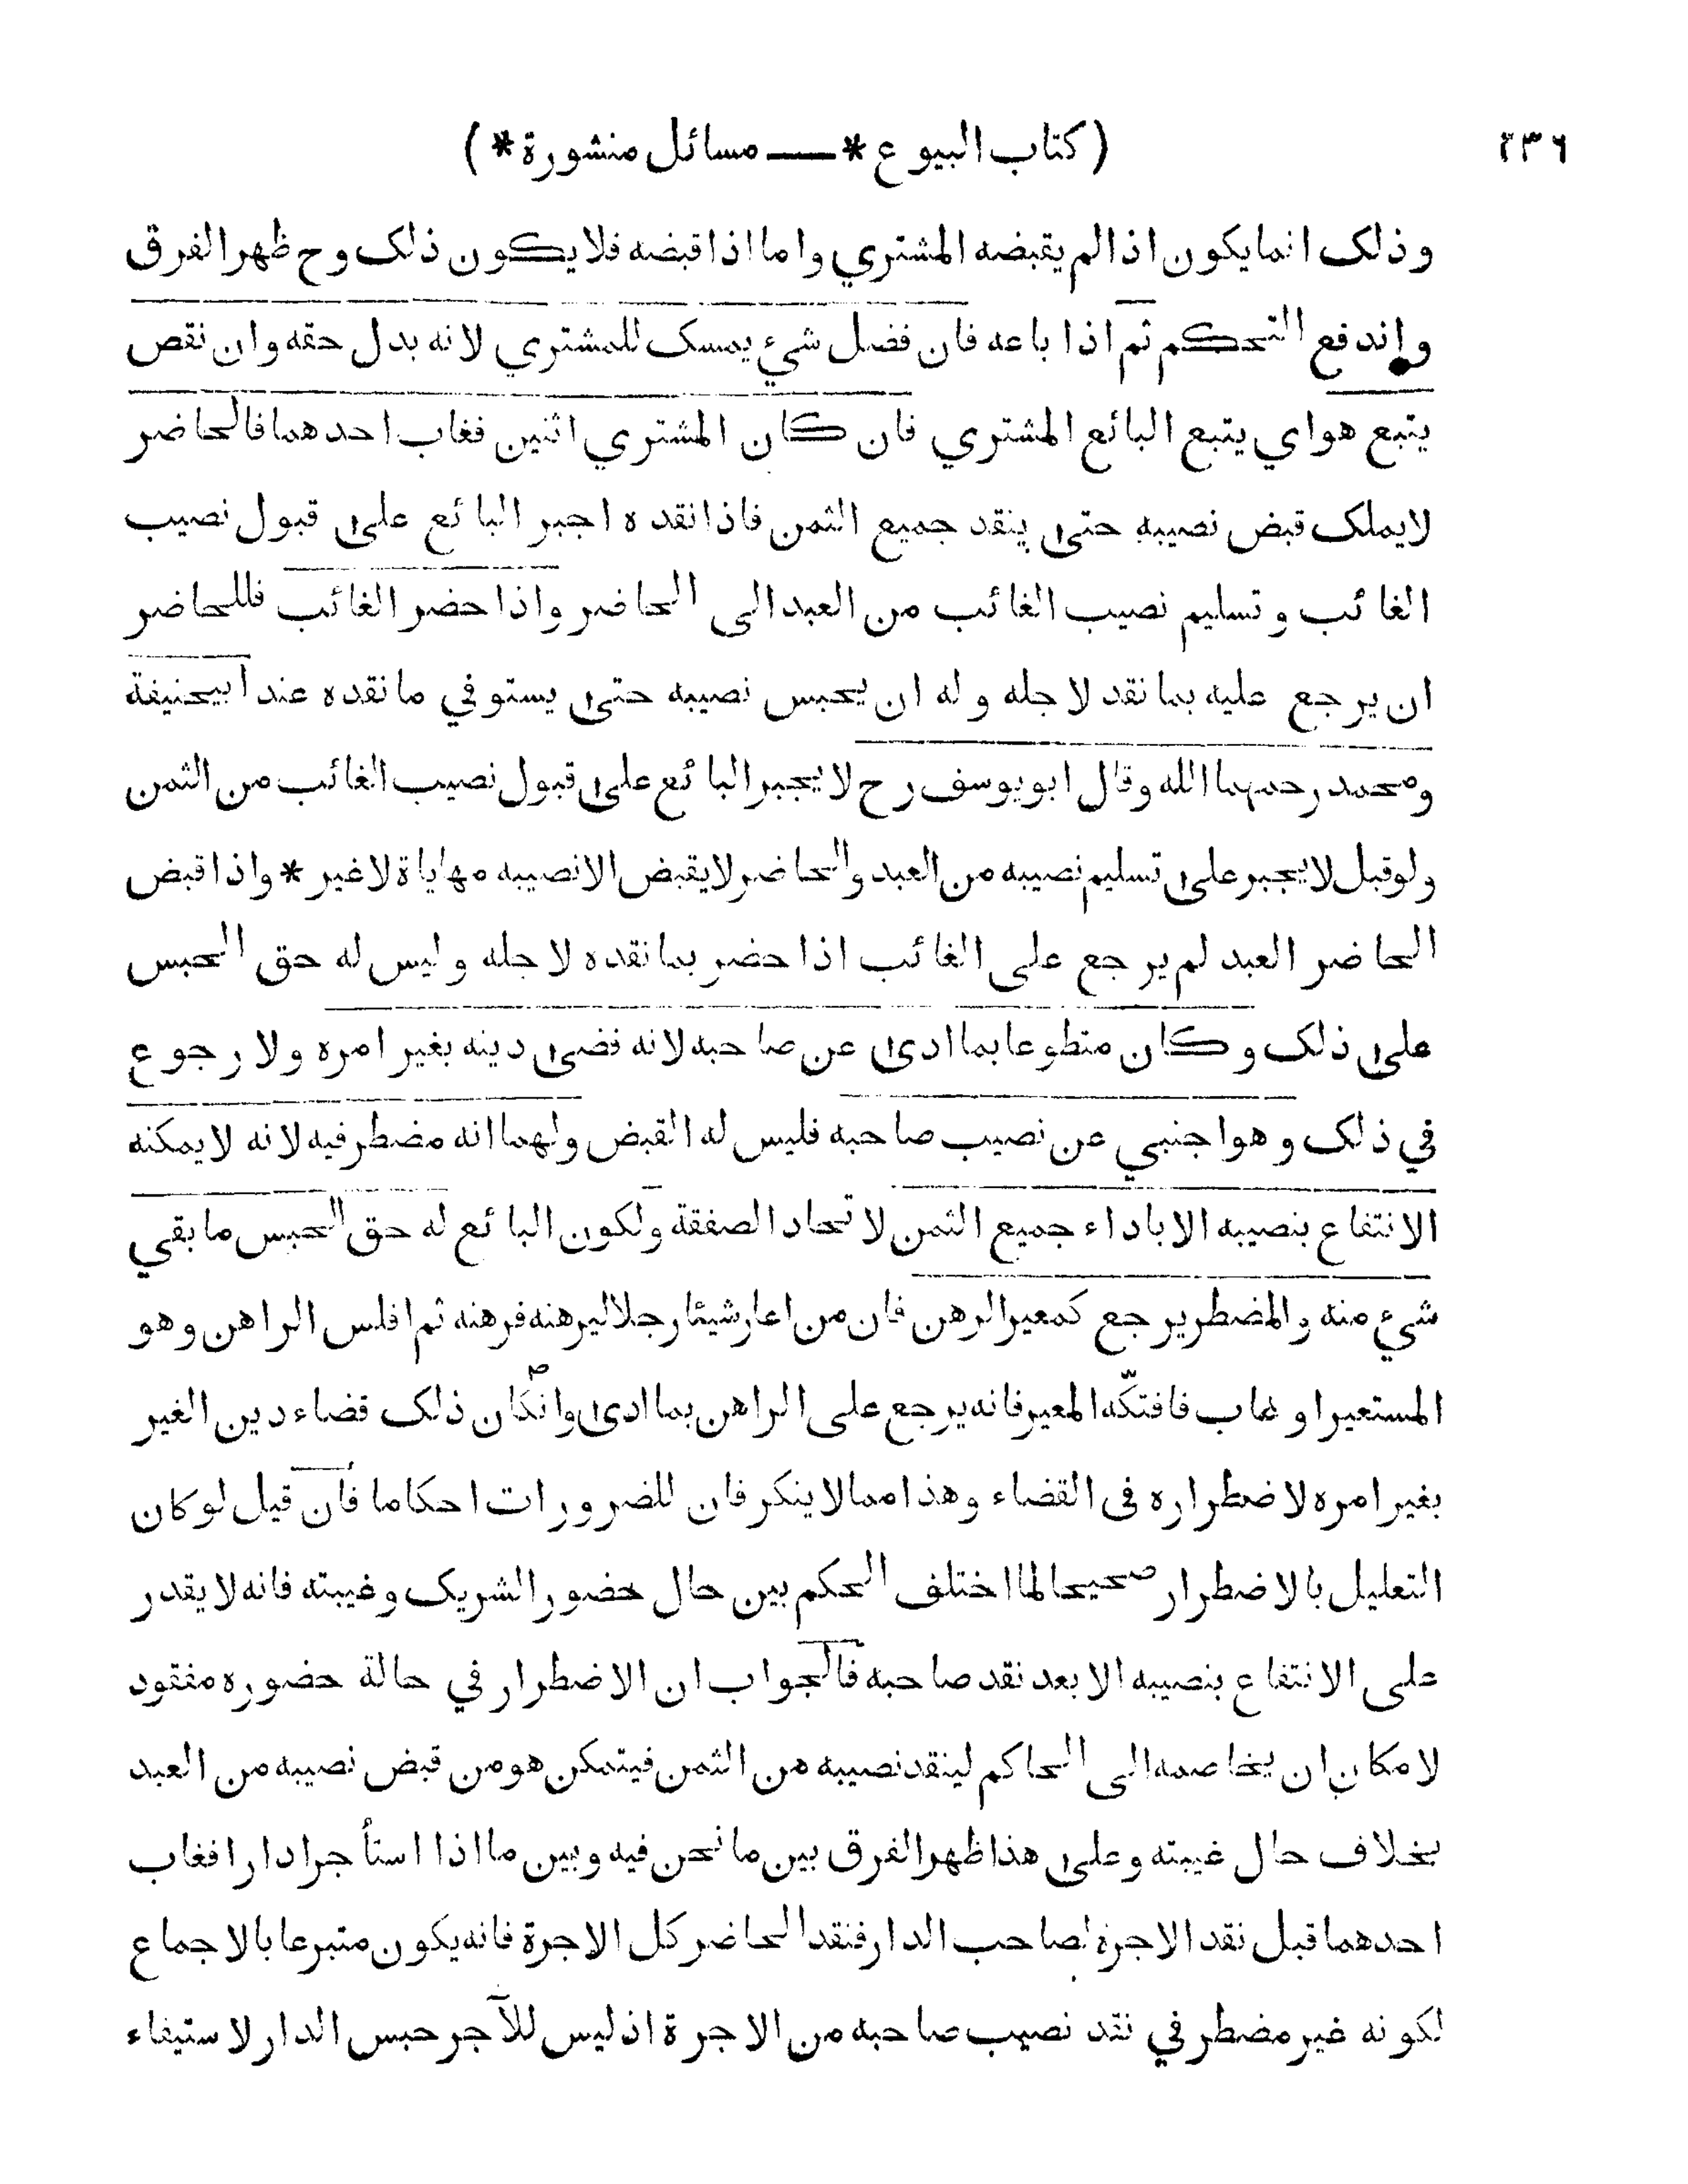 ( کتاب البیوع * ــــ مسائل منثورة * ) ۲۳۶
وذلک انما یکون اذا لم یقبضه المشتري واما اذا قبضه فلا یکون ذلک وح ظهر الفرق
واندفع التحکم ثم اذا باعه فان فضل شيء یمسک للمشتري لانه بدل حقه وان نقص
یتبع هو اي یتبع البائع المشتري فان کان المشتري اثنین فغاب احدهما فالحاضر
لا یملک قبض نصیبه حتی ینقد جمیع الثمن فاذا نقده اجبر البائع علی قبول نصیب
الغائب وتسلیم نصیب الغائب من العبد الی الحاضر واذا حضر الغائب فللحاضر
ان یرجع علیه بما نقد لاجله وله ان یحبس نصیبه حتی یستوفي ما نقده عند ابیحنیفة
ومحمد رحمهما الله وقال ابو یوسف رح لا یجبر البائع علی قبول نصیب الغائب من الثمن
ولو قبل لا یجبر علی تسلیم نصیبه من العبد والحاضر لا یقبض الا نصیبه مهایاة لا غیر * واذا قبض
الحاضر العبد لم یرجع علی الغائب اذا حضر بما نقده لاجله ولیس له حق الحبس
علی ذلک وکان متطوعا بما ادی عن صاحبه لانه قضی دینه بغیر امره ولا رجوع
في ذلک وهو اجنبي عن نصیب صاحبه فلیس له القبض ولهما انه مضطر فیه لانه لا یمکنه
الانتفاع بنصیبه الا باداء جمیع الثمن لاتحاد الصفقة ولکون البائع له حق الحبس ما بقي
شيء منه والمضطر یرجع کمعیر الرهن فان من اعار شیئا رجلا لیرهنه فرهنه ثم افلس الراهن وهو
المستعیر او غاب فافتکّه المعیر فانه یرجع علی الراهن بما ادی وانکان ذلک قضاء دین الغیر
بغیر امره لاضطراره في القضاء وهذا مما لا ینکر فان للضرورات احکاما فان قیل لو کان
التعلیل بالاضطرار صحیحا لما اختلف الحکم بین حال حضور الشریک وغیبته فانه لا یقدر
علی الانتفاع بنصیبه الا بعد نقد صاحبه فالجواب ان الاضطرار في حالة حضوره مفقود
لامکان ان یخاصمه الی الحاکم لینقد نصیبه من الثمن فیتمکن هو من قبض نصیبه من العبد
بخلاف حال غیبته وعلی هذا ظهر الفرق بین ما نحن فیه وبین ما اذا استأجرا دارا فغاب
احدهما قبل نقد الاجرة لصاحب الدار فنقد الحاضر کل الاجرة فانه یکون متبرعا بالاجماع
لکونه غیر مضطر في نقد نصیب صاحبه من الاجرة اذ لیس للآجر حبس الدار لاستیفاء